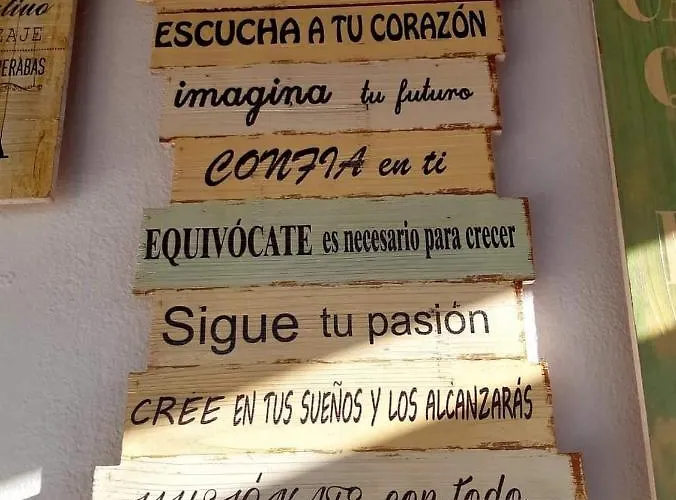 ESCUCHA A TU CORAZÓN
imagina tu futuro
CONFIA en ti
EQUIVÓCATE es necesario para crecer
Sigue tu pasión
CREE EN TUS SUEÑOS Y LOS ALCANZARÁS
con todo